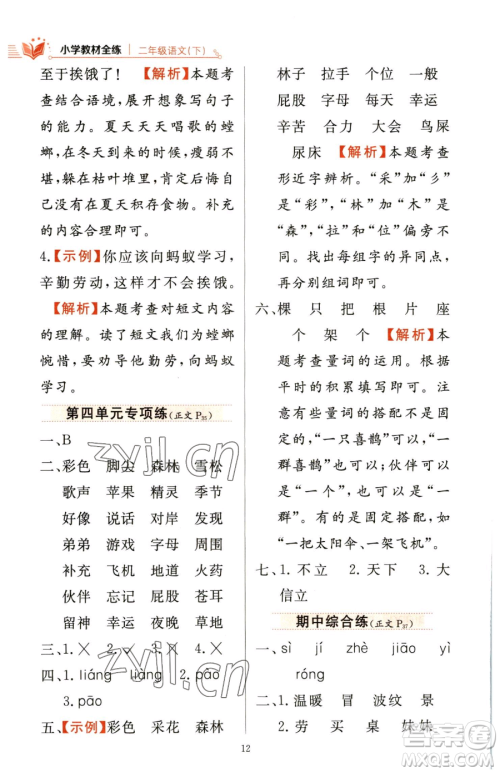 小学教材全练 二年级语文(下)
至于挨饿了！【解析】本题考
查结合语境，展开想象写句子
的能力。夏天天天唱歌的螳
螂，在冬天到来的时候，瘦弱不
堪，躲在枯叶堆里，后悔当初没
有及时积存食物。补充的
内容合理即可。
4.【示例】你应该向蚂蚁学习，
辛勤劳动，这样才不会挨饿。
【解析】本题考查对短文内容
的理解。读了短文我为螳螂
惋惜，要向他勤劳，向蚂蚁
学习。
第四单元专项练(正文P35)
一、B
二、彩色 脚尖 森林 雪松
歌声 苹果 精灵 季节
好像 说话 对岸 发现
弟弟 游戏 字母 周围
补充 飞机 地道 火药
伙伴 容易 及格 苍耳
脚印 幸运 夜晚 草地
三、1.× 2.× 3.× 4.×
四、1.liáng liàng 2.pào
3.pāo
五、【示例】彩色 采花 森林
林子 拉手 个位 一般
屁股 字母 每天 幸运
辛苦 合力 大会 鸟屎
尿床 【解析】本题考查
形近字辨析。“采”加“彡”
是“彩”，“林”加“木”是
“森”，“拉”和“位”偏旁不
同。找出它们的不同点，再
分别组词即可。
六、棵 只 把 根 片 座
个 架 个 【解析】本
题考查量词的运用。根据
平时的积累进行填写即可。
注意，有些量词是不固定
的，如“一只喜鹊”，也可“一
群喜鹊”“一个喜鹊”，填“一
个”，也可以是“一排”“一
群”。有的是固定搭配，如
“一把太阳伞、一架飞机”。
七、1.不立 2.天下 3.大
信立
期中综合练(正文P37)
一、sì jí zhè jiāo yì
róng
二、1.温暖 冒 波纹 景
2.劳 买 桌 妹妹
12
zyjl.cn
zyjl.cn